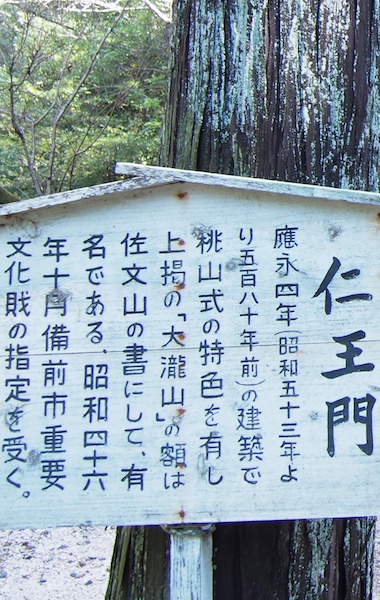 仁王門
應永四年(昭和五十三年よ
り五百八十年前)の建築で
桃山式の特色を有し
上掲の「大瀧山」の額は
佐文山の書にして、有
名である、昭和四十六
年十月備前市重要
文化財の指定を受く。